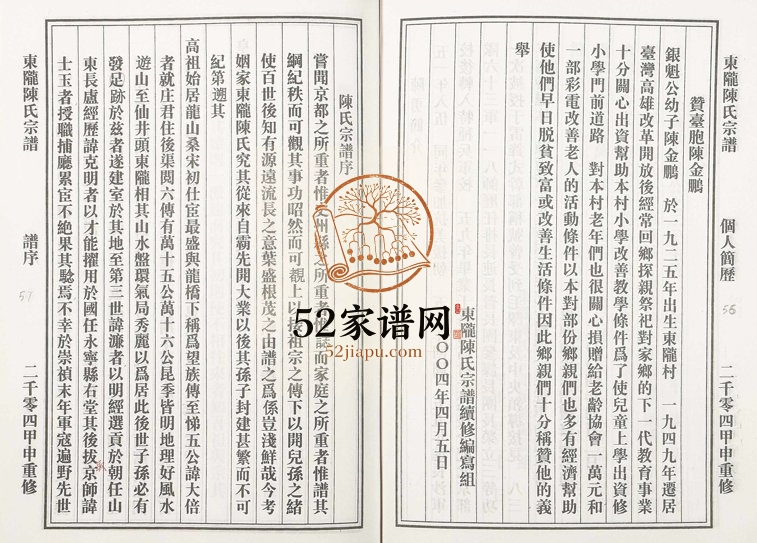 東隴陳氏宗譜
個人簡歷
56
二千零四甲申重修
贊臺胞陳金鵬
銀魁公幼子陳金鵬 於一九二五年出生東隴村 一九四九年遷居
臺灣高雄改革開放後經常回鄉探親祭祀對家鄉的下一代教育事業
十分關心出資幫助本村小學改善教學條件爲了使兒童上學出資修
小學門前道路 對本村老年們也很關心損贈給老齡協會一萬元和
一部彩電改善老人的活動條件以本對部份鄉親們也多有經濟幫助
使他們早日脱貧致富或改善生活條件因此鄉親們十分稱贊他的義
舉
東隴陳氏宗譜續修編寫組
〇〇四年四月五日
陳氏宗譜序
嘗聞京都之所重者惟 州縣之所重者 誌而家庭之所重者惟譜其
綱紀秩而可觀其事功昭然而可覩上以接祖宗之傳下以開兒孫之緒
使百世後知有源遠流長之意葉盛根茂之由譜之爲係豈淺鮮哉今考
姻家東隴陳氏究其從來自霸先開大業以後其孫子封建甚繁而不可
紀第遡其
高祖始居龍山桑宋初仕宦最盛與龍橋下稱爲望族傳至悌五公諱大倍
者就庄君住後渠閲六傳有萬十五公萬十六公昆季皆明地理好風水
遊山至仙井頭東隴相其山水盤環氣局秀麗以爲居此後世子孫必有
發足跡於兹者遂建室於其地至第三世諱濂者以明經選貢於朝任山
東長廬經歷諱克明者以才能擢用於國任永寧縣右堂其後拔京師諱
士玉者授職捕廳累宦不絶果其騐焉不幸於崇禎末年軍寇遍野先世
東隴陳氏宗譜
譜序
57
二千零四甲申重修
52家谱网
52jiapu.com